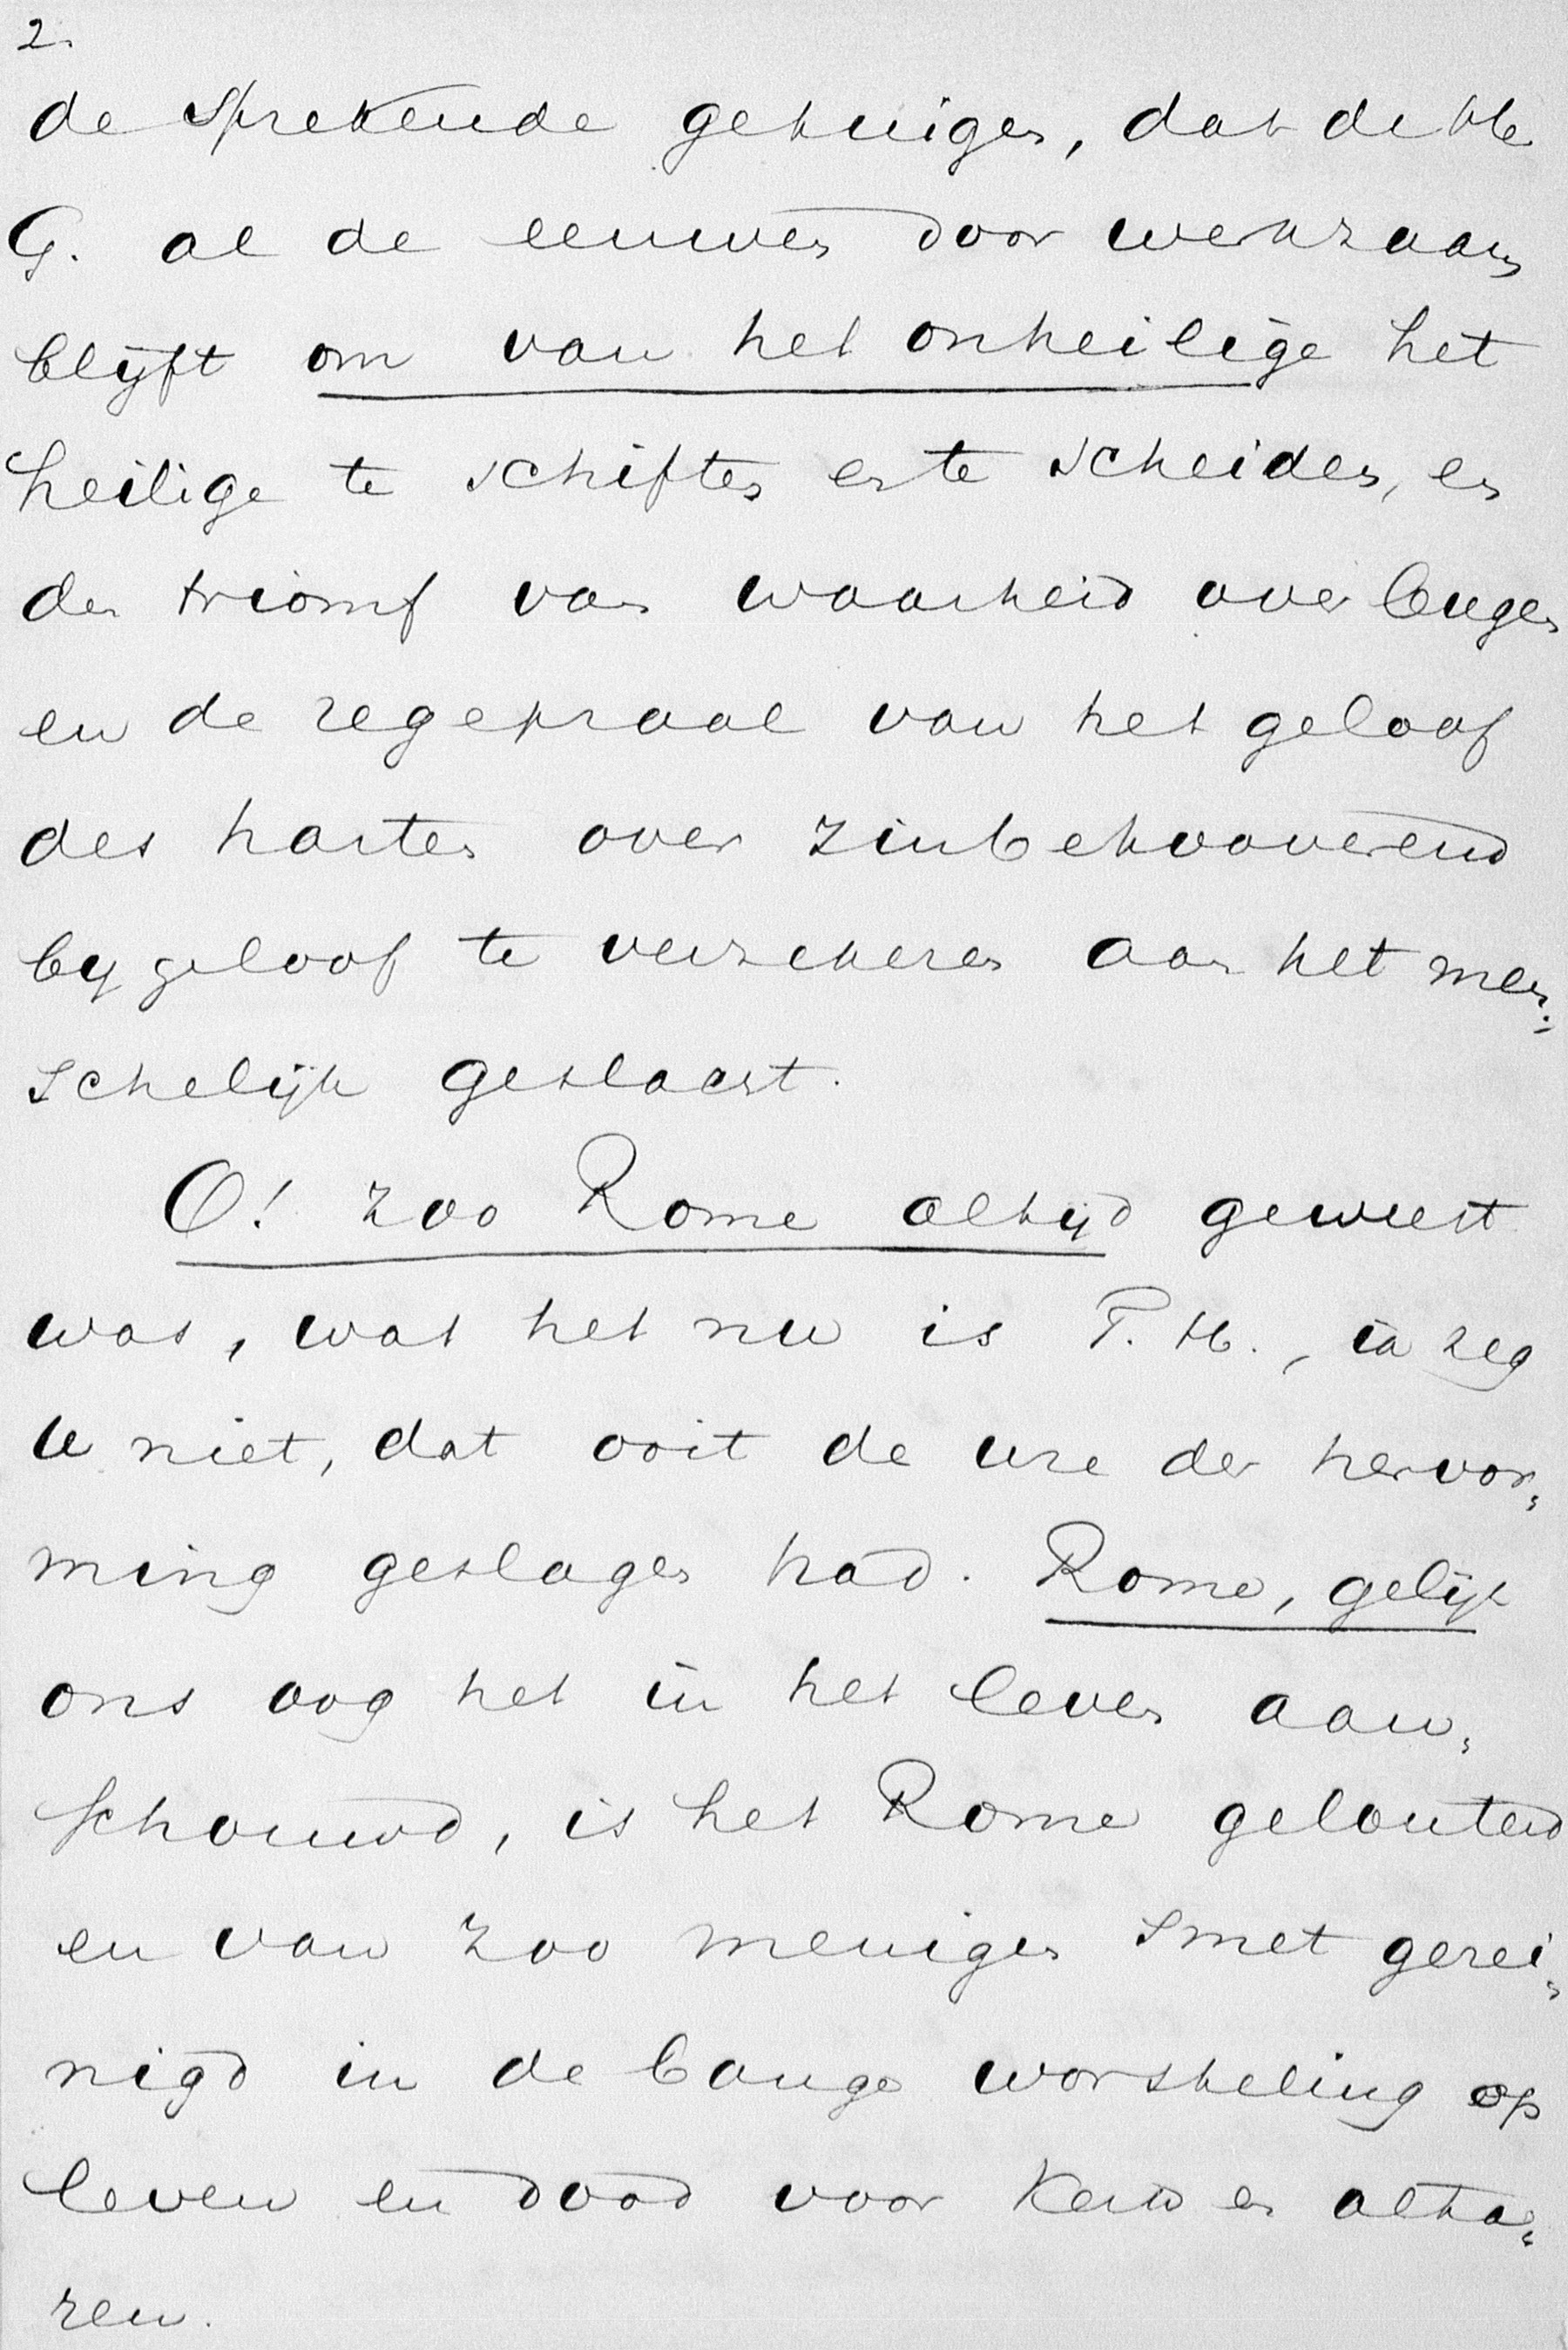 2.
de sprekende getuigen, dat de H.
G. al de eeuwen door werkzaam
blijft om van het onheilige het
heilige te schiften en te scheiden, en
den triomf van waarheid over leugen
en de zegepraal van het geloof
des harten over zinbetooverend
bygeloof te verzekeren aan het men-
schelijk geslacht.
O! zoo Rome altijd geweest
was, wat het nu is T. H., ik zeg
U niet, dat ooit de ure der hervor-
ming geslagen had. Rome, gelijk
ons oog het in het leven aan-
schouwd, is het Rome gelouterd
en van zoo menigen smet gerei-
nigd in de bange worsteling op
leven en dood voor Kerk en alta-
ren.